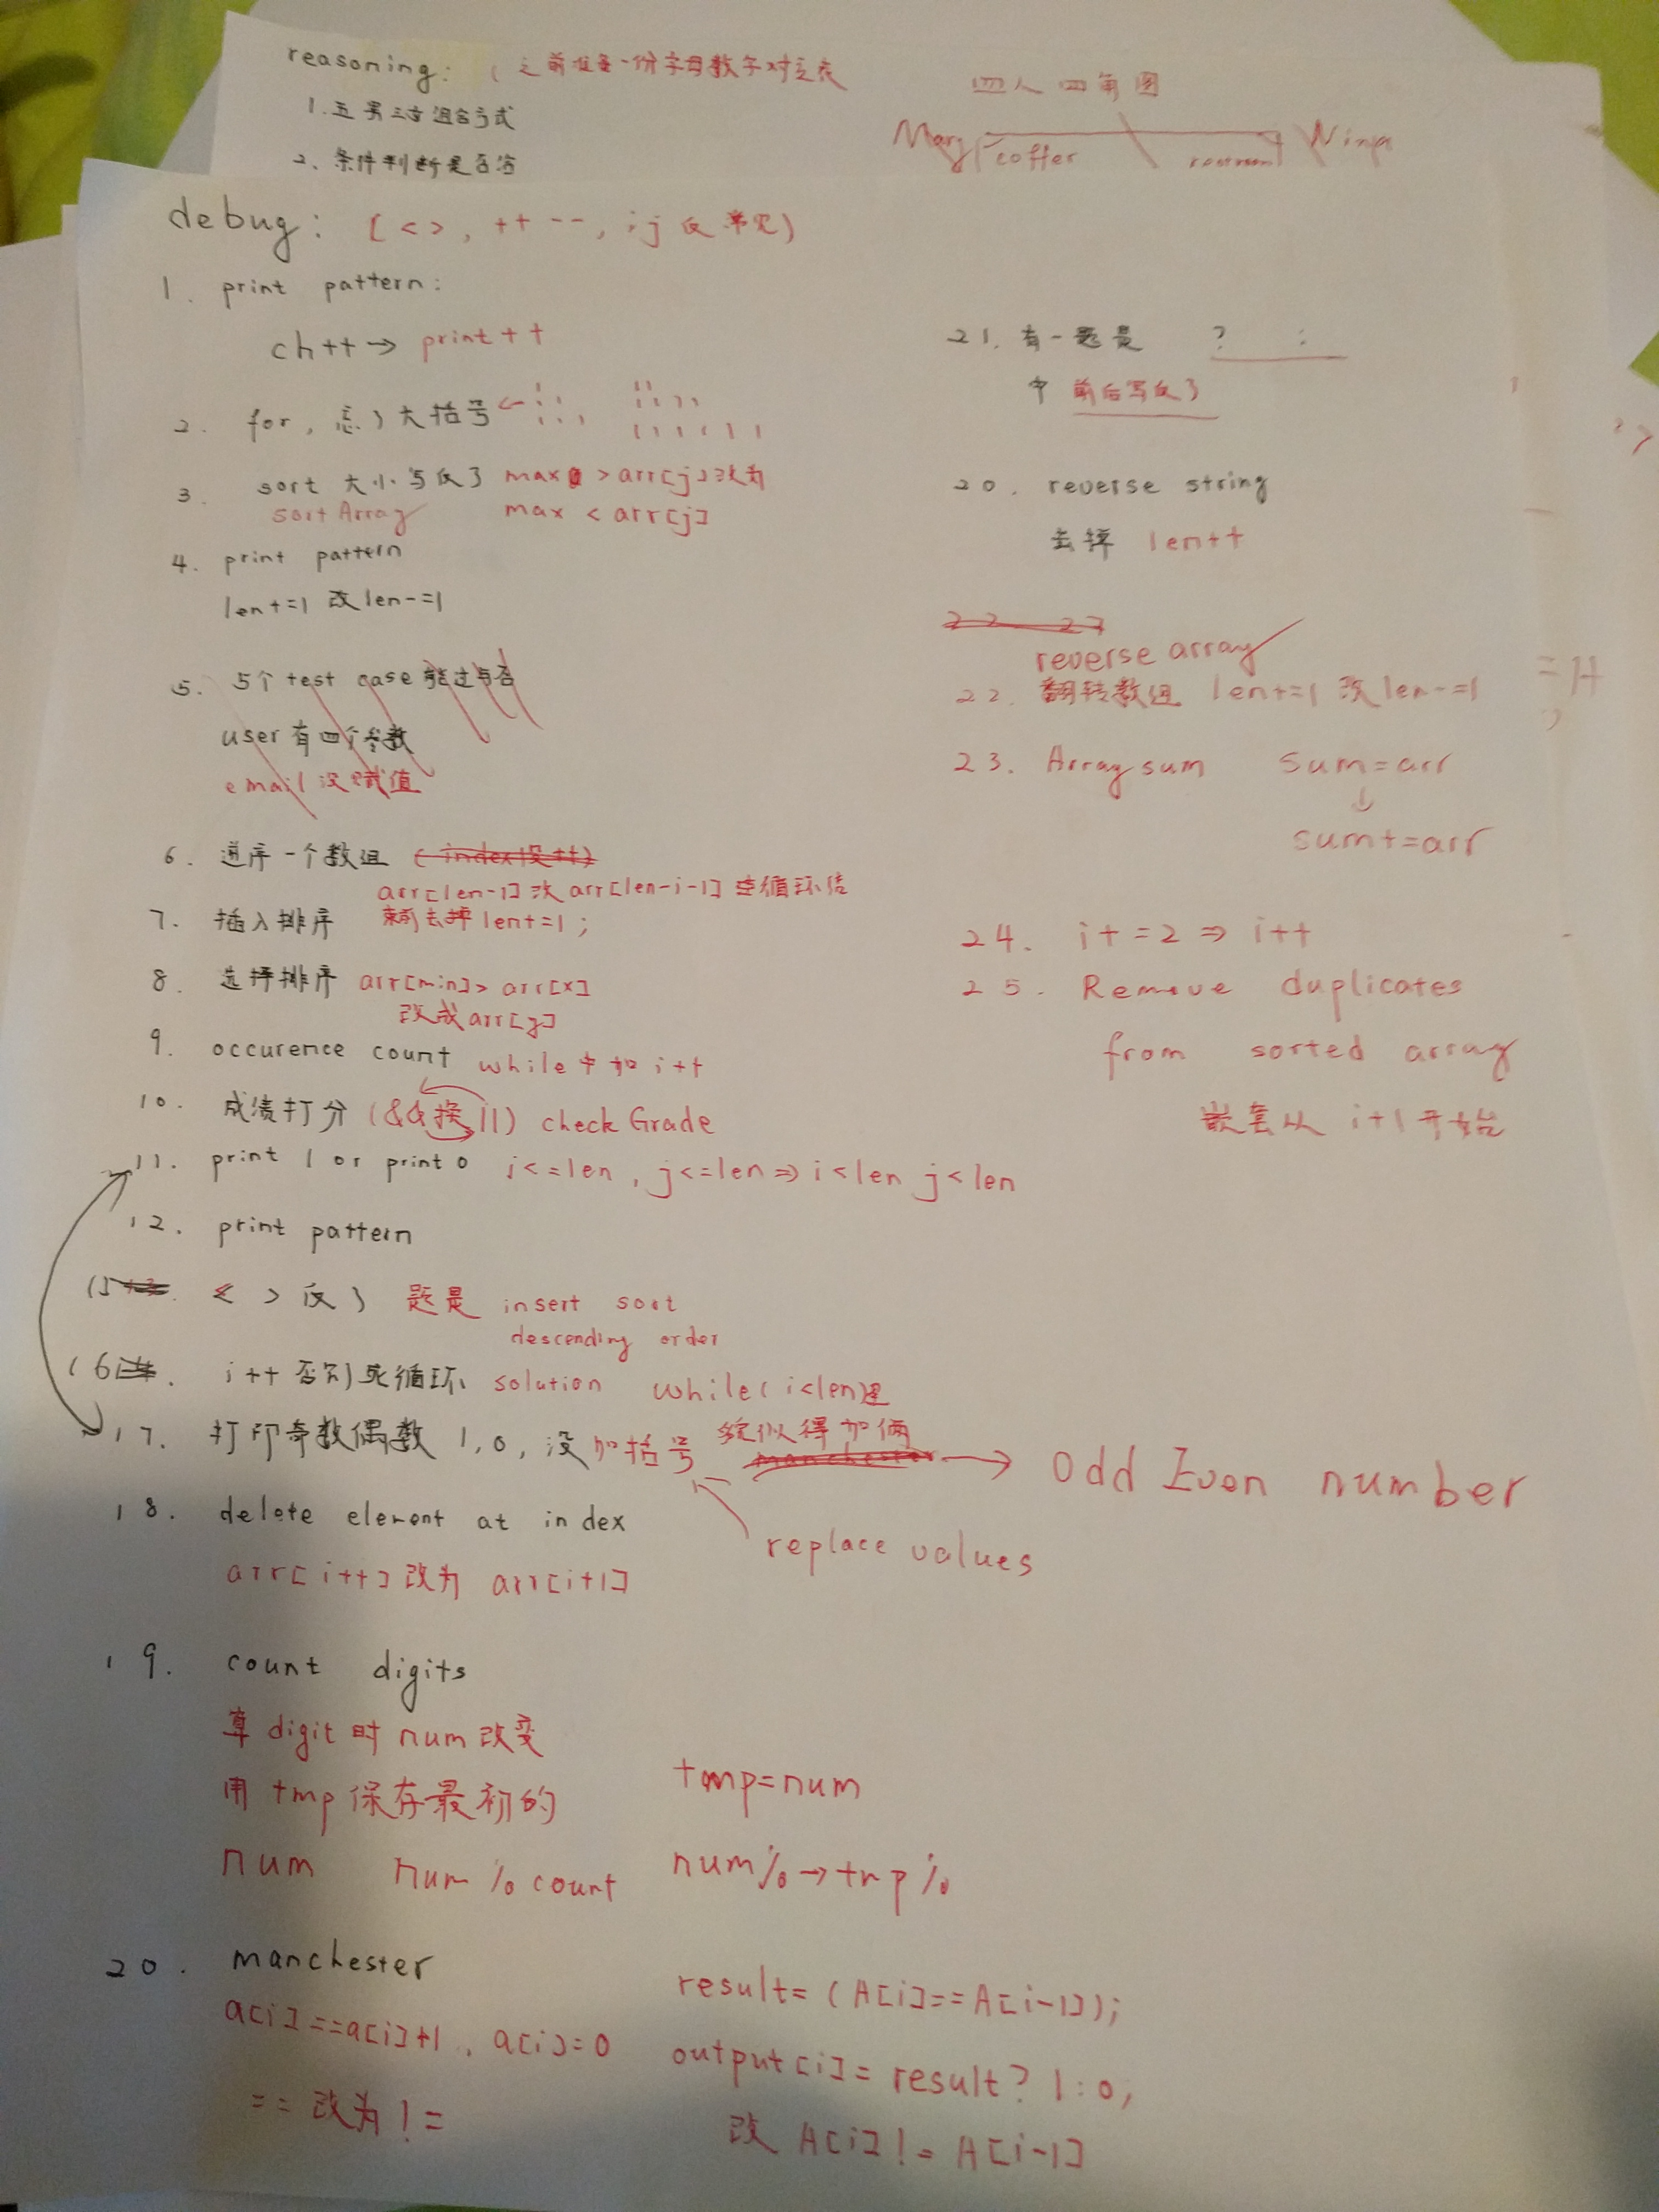 reasoning: (之前准备一份字母数字对应表
1. 五男三女组合方式
2. 条件判断是否
四人四角图
Mary coffer restroom Ninja
debug: [<>, ++ --, i j 反 常见)
1. print pattern:
ch++ → print++
2. for, 忘了大括号 ←
3. sort 大小写反了 max > arr[j] 改为
sort Array max < arr[j]
4. print pattern
len+=1 改 len-=1
5. 5个 test case 能过与否
user 有四个参数
email 没赋值
6. 逆序一个数组 (index没++)
arr[len-1] 改 arr[len-i-1] 循环
7. 插入排序 去掉 len+=1;
8. 选择排序 arr[min]> arr[x]
改成arr[y]
9. occurence count while 中加 i++
10. 成绩打分 (&&换||) check Grade
11. print 1 or print 0 i<=len, j<=len ⇒ i<len j<len
12. print pattern
15 < > 反了 题是 insert sort
descending order
16. i++ 否则死循环 solution while(i<len)里
17. 打印奇数偶数 1,0, 没加括号 貌似得加俩
manchester → Odd Even number
replace values
18. delete element at index
arr[i++] 改为 arr[i+1]
19. count digits
算 digit 时 num 改变
用 tmp 保存最初的 tmp=num
num num % count num% → tmp %
20. manchester
a[i]==a[i]+1, a[i]=0
== 改为 !=
result= (A[i]==A[i-1]);
output[i]= result? 1:0,
改 A[i] != A[i-1]
21. 有一题是 ? :
中 前后写反了
20. reverse string
去掉 len++
22 23
reverse array
22. 翻转数组 len+=1 改 len-=1
23. Array sum sum=arr
↓
sum+=arr
24. i+=2 ⇒ i++
25. Remove duplicates
from sorted array
嵌套从 i+1 开始